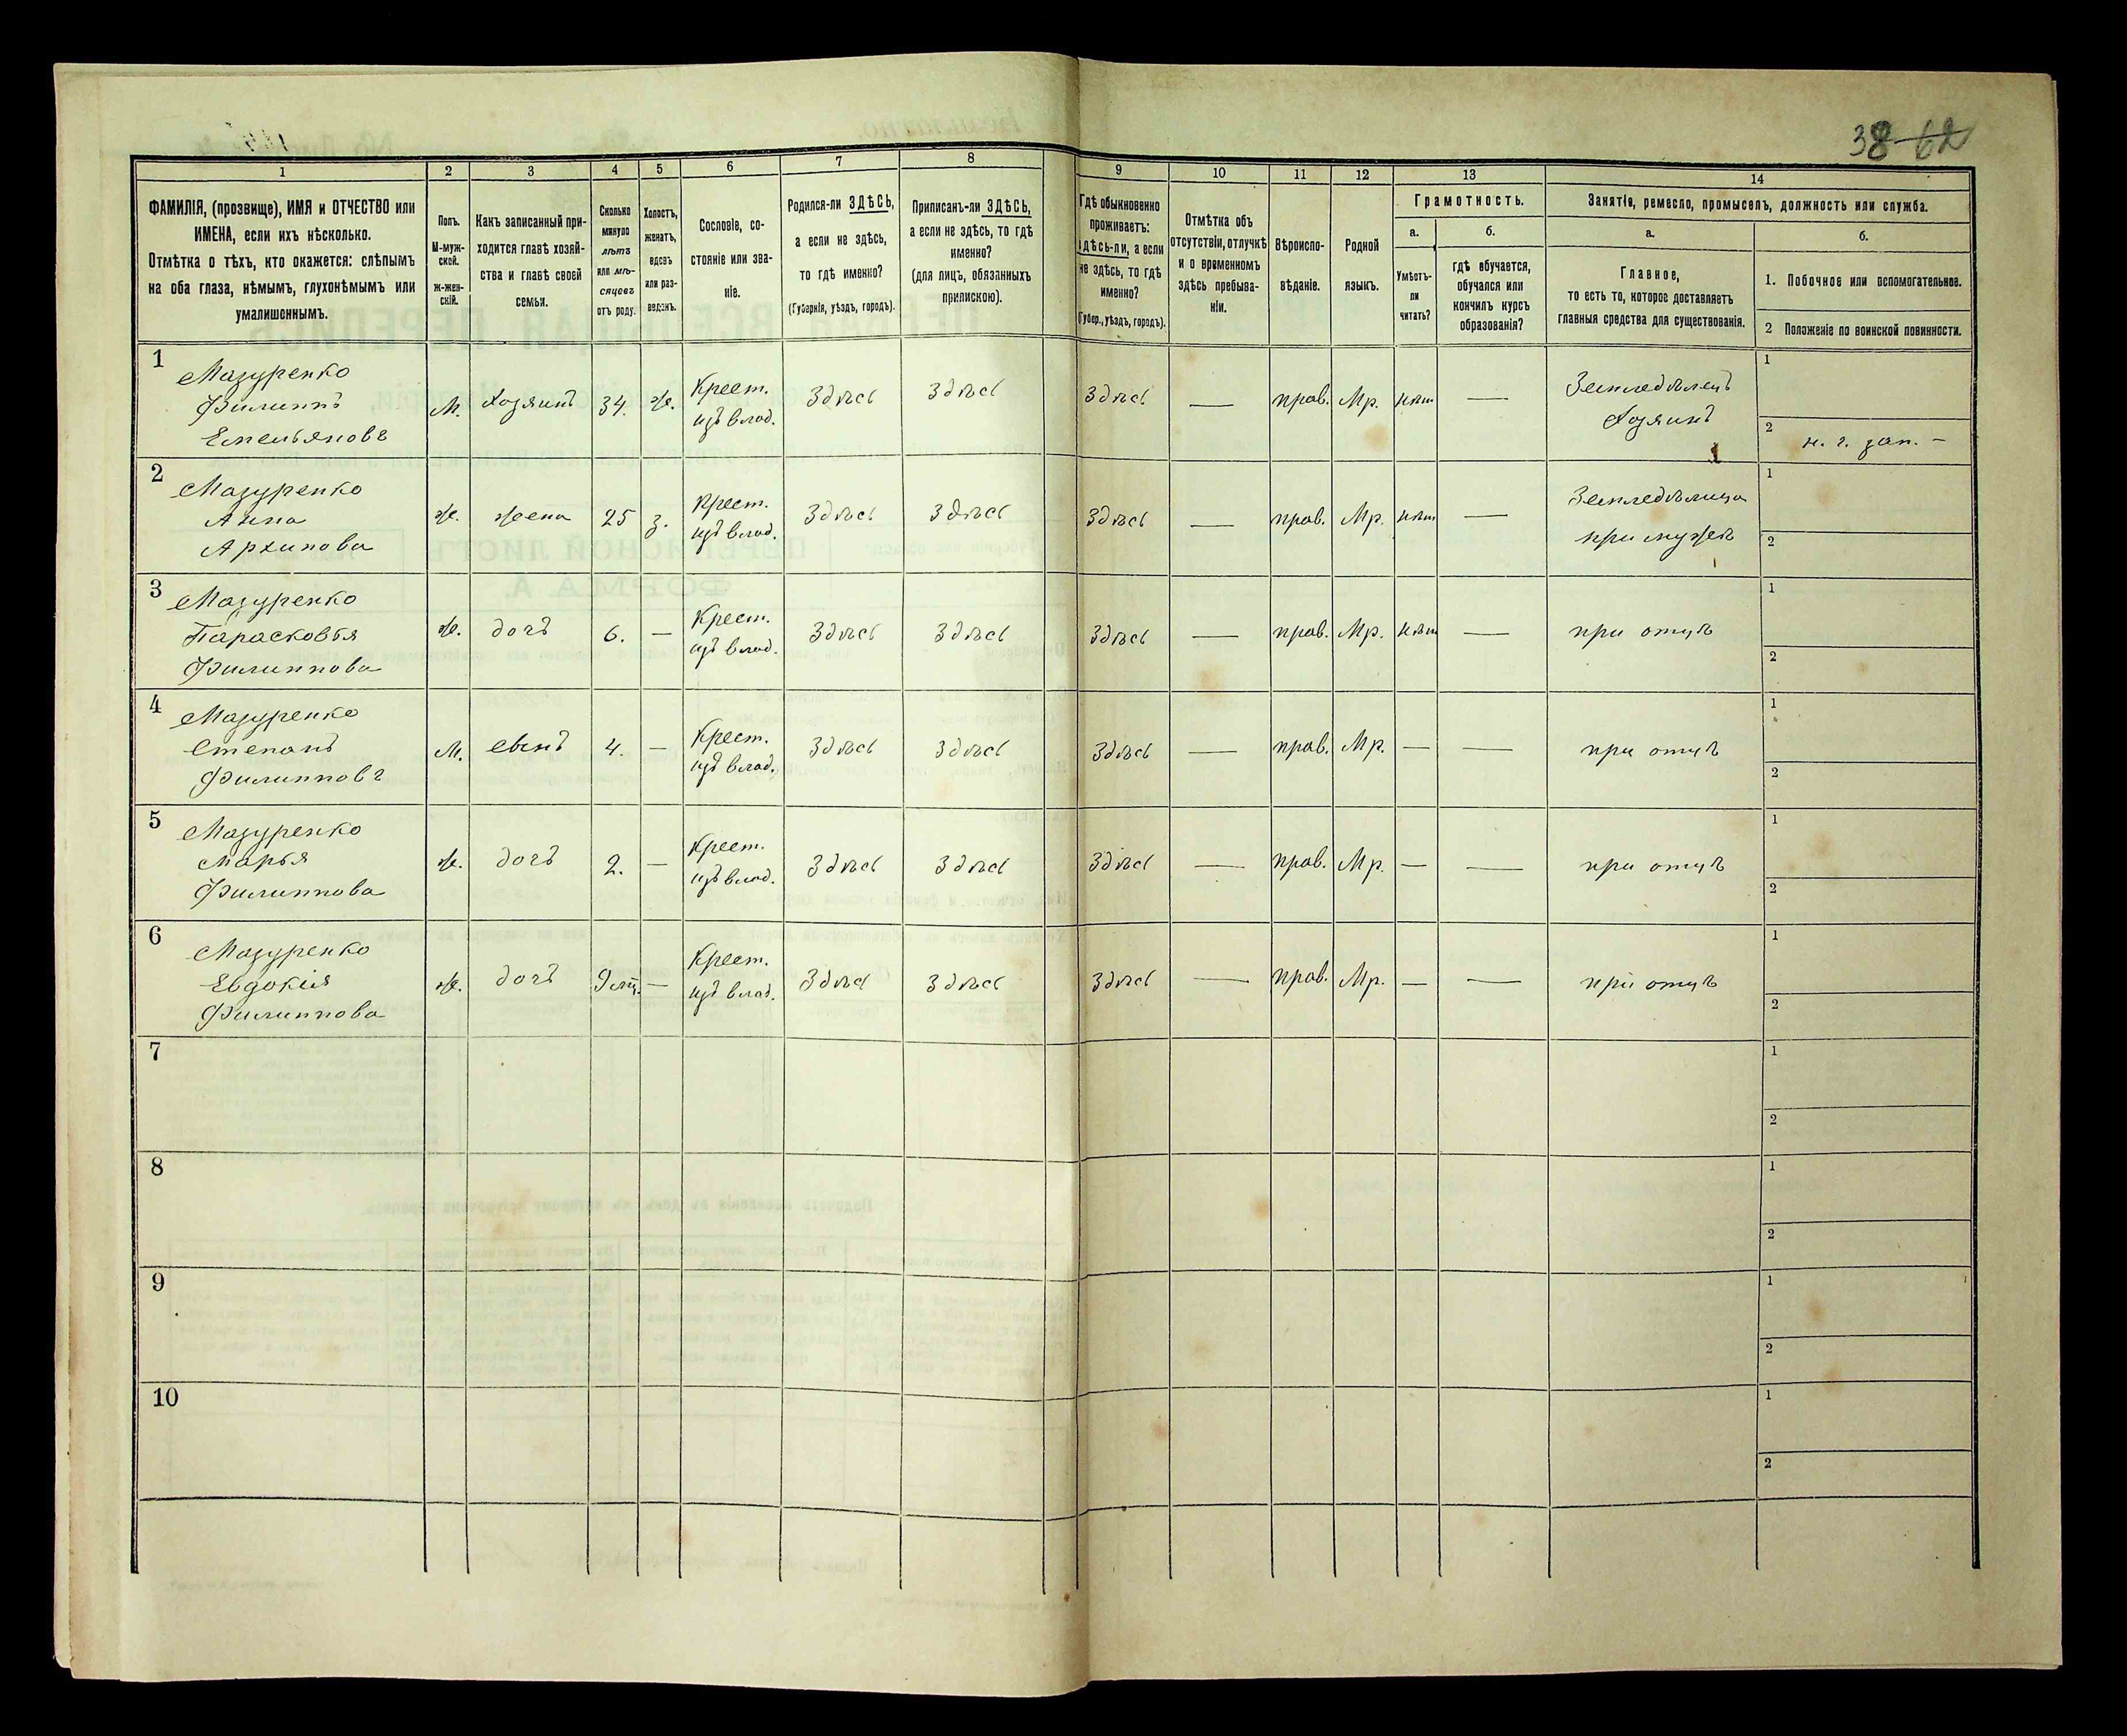 38 62
1 2 3 4 5 6 7 8 9 10 11 12 13 14
ФАМИЛІЯ, (прозвище), ИМЯ и ОТЧЕСТВО или
ИМЕНА, если ихъ нѣсколько.
Отмѣтка о тѣхъ, кто окажется: слѣпымъ
на оба глаза, нѣмымъ, глухонѣмымъ или
умалишоннымъ.
Полъ.
М-муж-
ской.
Ж-жен-
скій.
Какъ записанный при-
ходится главѣ хозяй-
ства и главѣ своей
семьи.
Сколько
минуло
лѣтъ
или мѣ-
сяцевъ
отъ роду.
Холостъ,
женатъ,
вдовъ
или раз-
веденъ.
Сословіе, со-
стояніе или зва-
ніе.
Родился-ли ЗДѢСЬ,
а если не здѣсь,
то гдѣ именно?
(Губернія, уѣздъ, городъ).
Приписанъ-ли ЗДѢСЬ,
а если не здѣсь, то гдѣ
именно?
(для лицъ, обязанныхъ
припискою).
Гдѣ обыкновенно
проживаетъ:
здѣсь-ли, а если
не здѣсь, то гдѣ
именно?
(Губер., уѣздъ, городъ).
Отмѣтка объ
отсутствіи, отлучкѣ
и о временномъ
здѣсь пребыва-
ніи.
Вѣроиспо-
вѣданіе.
Родной
языкъ.
Грамотность.
а.
Умѣетъ-
ли
читать?
б.
гдѣ обучается,
обучался или
кончилъ курсъ
образованія?
Занятіе, ремесло, промыселъ, должность или служба.
а.
Главное,
то есть то, которое доставляетъ
главныя средства для существованія.
б.
1. Побочное или вспомогательное.
2 Положеніе по воинской повинности.
1
Мазуренко
Филиппъ
Емельяновъ
М. Хозяинъ 34. Ж. Крест.
изъ влад.
Здѣсь Здѣсь Здѣсь — прав. Мр. нѣт —
Земледѣлецъ
Хозяинъ
1
2 н. г. зап. –
2
Мазуренко
Анна
Архипова
Ж. жена 25 З. Крест.
изъ влад.
Здѣсь Здѣсь Здѣсь — прав. Мр. нѣт —
Земледѣлица
при мужѣ
1
2
3
Мазуренко
Парасковья
Филиппова
Ж. дочъ 6. — Крест.
изъ влад.
Здѣсь Здѣсь Здѣсь — прав. Мр. нѣт — при отцѣ
1
2
4
Мазуренко
Степанъ
Филипповъ
М. сынъ 4. — Крест.
изъ влад.
Здѣсь Здѣсь Здѣсь — прав. Мр. — — при отцѣ
1
2
5
Мазуренко
Марья
Филиппова
Ж. дочъ 2. — Крест.
изъ влад.
Здѣсь Здѣсь Здѣсь — прав. Мр. — — при отцѣ
1
2
6
Мазуренко
Евдокія
Филиппова
Ж. дочъ 9 мц. — Крест.
изъ влад.
Здѣсь Здѣсь Здѣсь — прав. Мр. — — при отцѣ
1
2
7
1
2
8
1
2
9
1
2
10
1
2